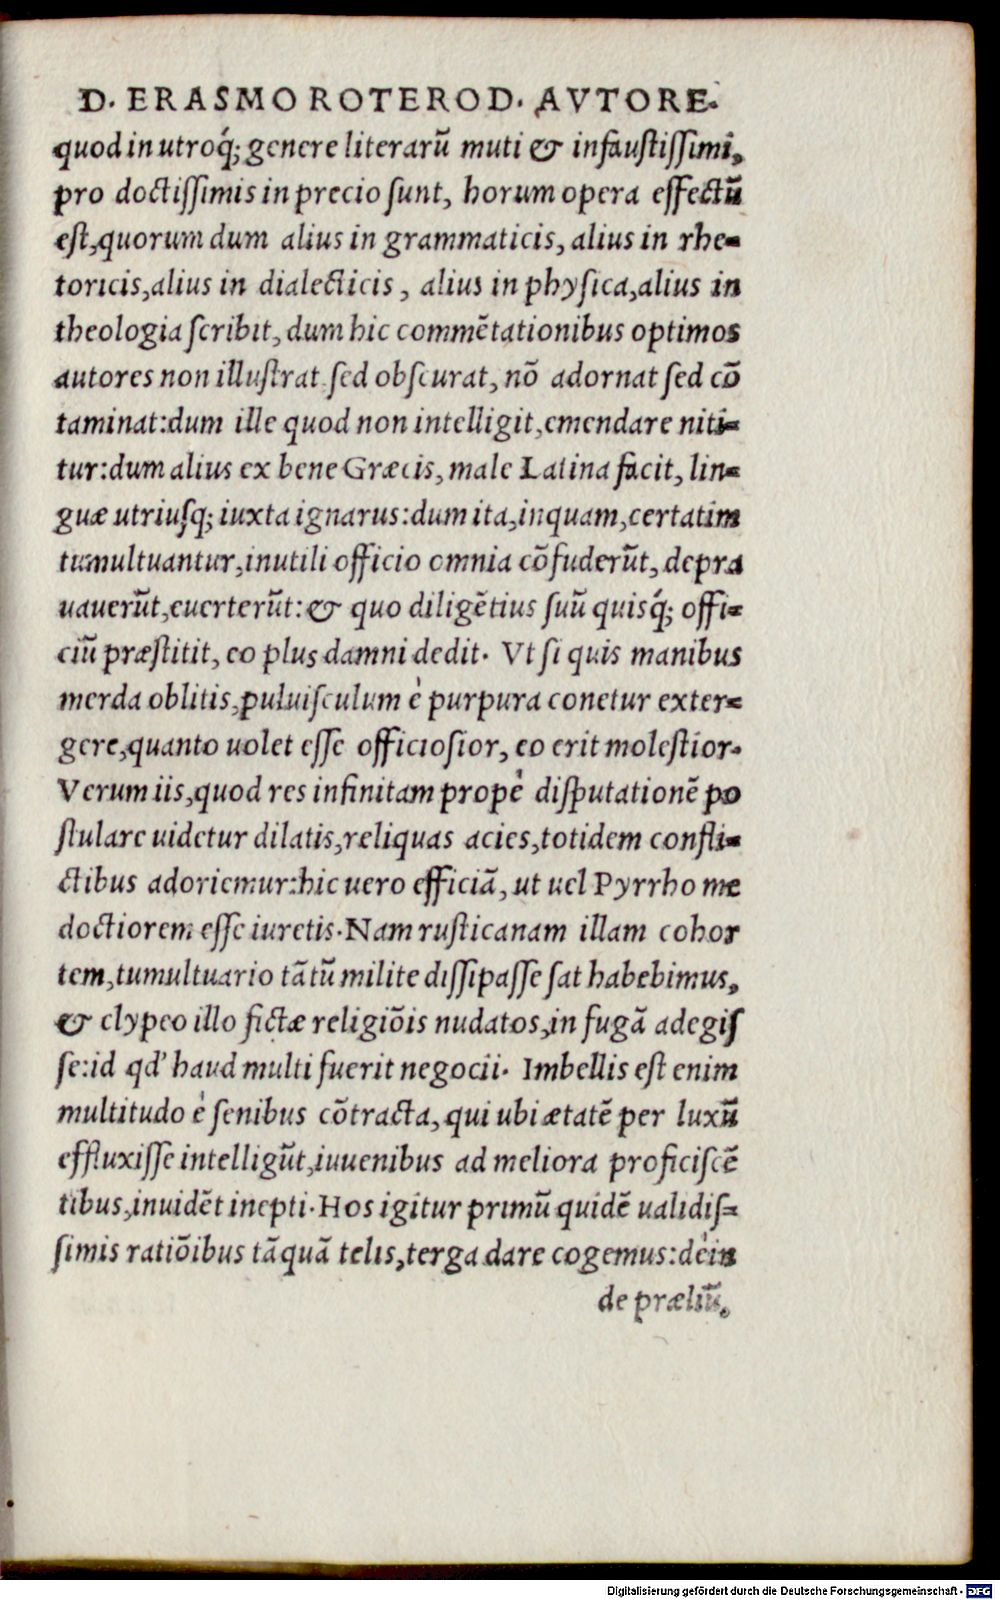 D. ERASMO ROTEROD. AVTORE.
quod in utroq́; genere literarũ muti & infaustissimi,
pro doctissimis in precio sunt, horum opera effectũ
est, quorum dum alius in grammaticis, alius in rhe=
toricis, alius in dialecticis, alius in physica, alius in
theologia scribit, dum hic commẽtationibus optimos
autores non illustrat sed obscurat, nõ adornat sed cõ
taminat: dum ille quod non intelligit, emendare niti=
tur: dum alius ex bene Græcis, male Latina facit, lin=
guæ utriusq; iuxta ignarus: dum ita, inquam, certatim
tumultuantur, inutili officio omnia cõfuderũt, depra
uauerũt, euerterũt: & quo diligẽtius suũ quisq́; offi=
ciũ præstitit, eo plus damni dedit. Vt si quis manibus
merda oblitis, puluisculum è purpura conetur exter=
gere, quanto uolet esse officiosior, eo erit molestior.
Verum iis, quod res infinitam propè disputationẽ po
stulare uidetur dilatis, reliquas acies, totidem confli=
ctibus adoriemur: hic uero efficiã, ut uel Pyrrho me
doctiorem esse iuretis. Nam rusticanam illam cohor
tem, tumultuario tãtũ milite dissipasse sat habebimus,
& clypeo illo fictæ religiõis nudatos, in fugã adegis
se: id qd' haud multi fuerit negocii. Imbellis est enim
multitudo è senibus cõtracta, qui ubi ætatẽ per luxũ
effluxisse intelligũt, iuuenibus ad meliora proficiscẽ
tibus, inuidẽt inepti. Hos igitur primũ quidẽ ualidis=
simis ratiõibus tãquã telis, terga dare cogemus: dèin
de præliũ,
Digitalisierung gefördert durch die Deutsche Forschungsgemeinschaft - DFG